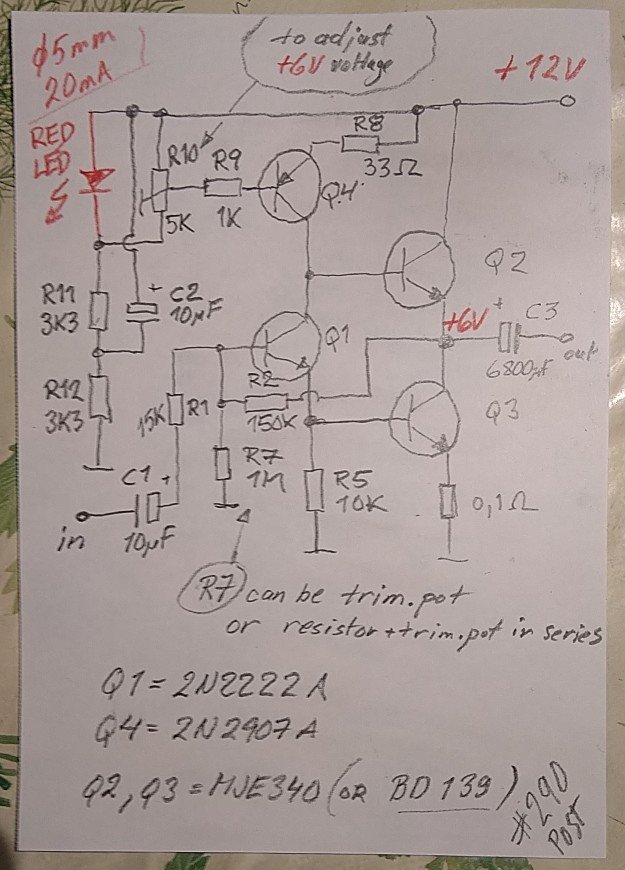 φ5mm
20mA
to adjust
+6V voltage
+12V
RED
LED
R10
5K
R9
1K
Q4
R8
33Ω
Q2
R11
3K3
C2
+
10μF
Q1
+6V
+
C3
6800μF
out
R12
3K3
15K
R1
R2
150K
Q3
R7
1M
R5
10K
0,1Ω
C1
+
in
10μF
R7 can be trim.pot
or resistor+trim.pot in series
Q1=2N2222A
Q4=2N2907A
Q2,Q3=MJE340(OR BD139)
#290
Post